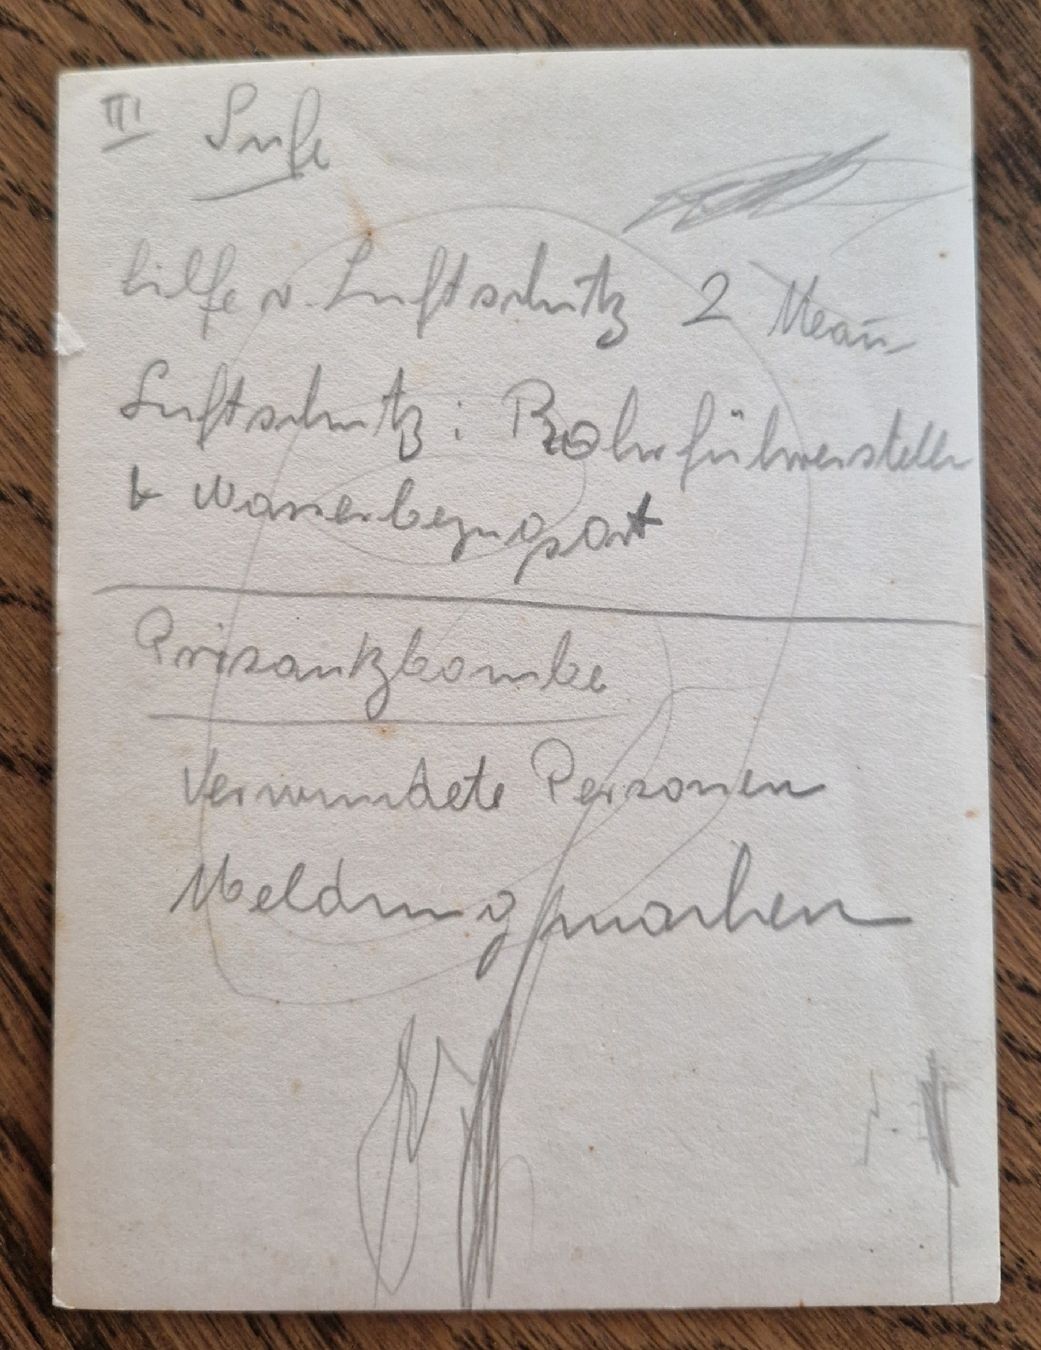 III Luft
hilfe v. Luftschutz 2 Mann
Luftschutz: Rohrführerstellen
+ Wasserbezugsort
Prisantzbombe
Verwundete Personen
Meldung machen